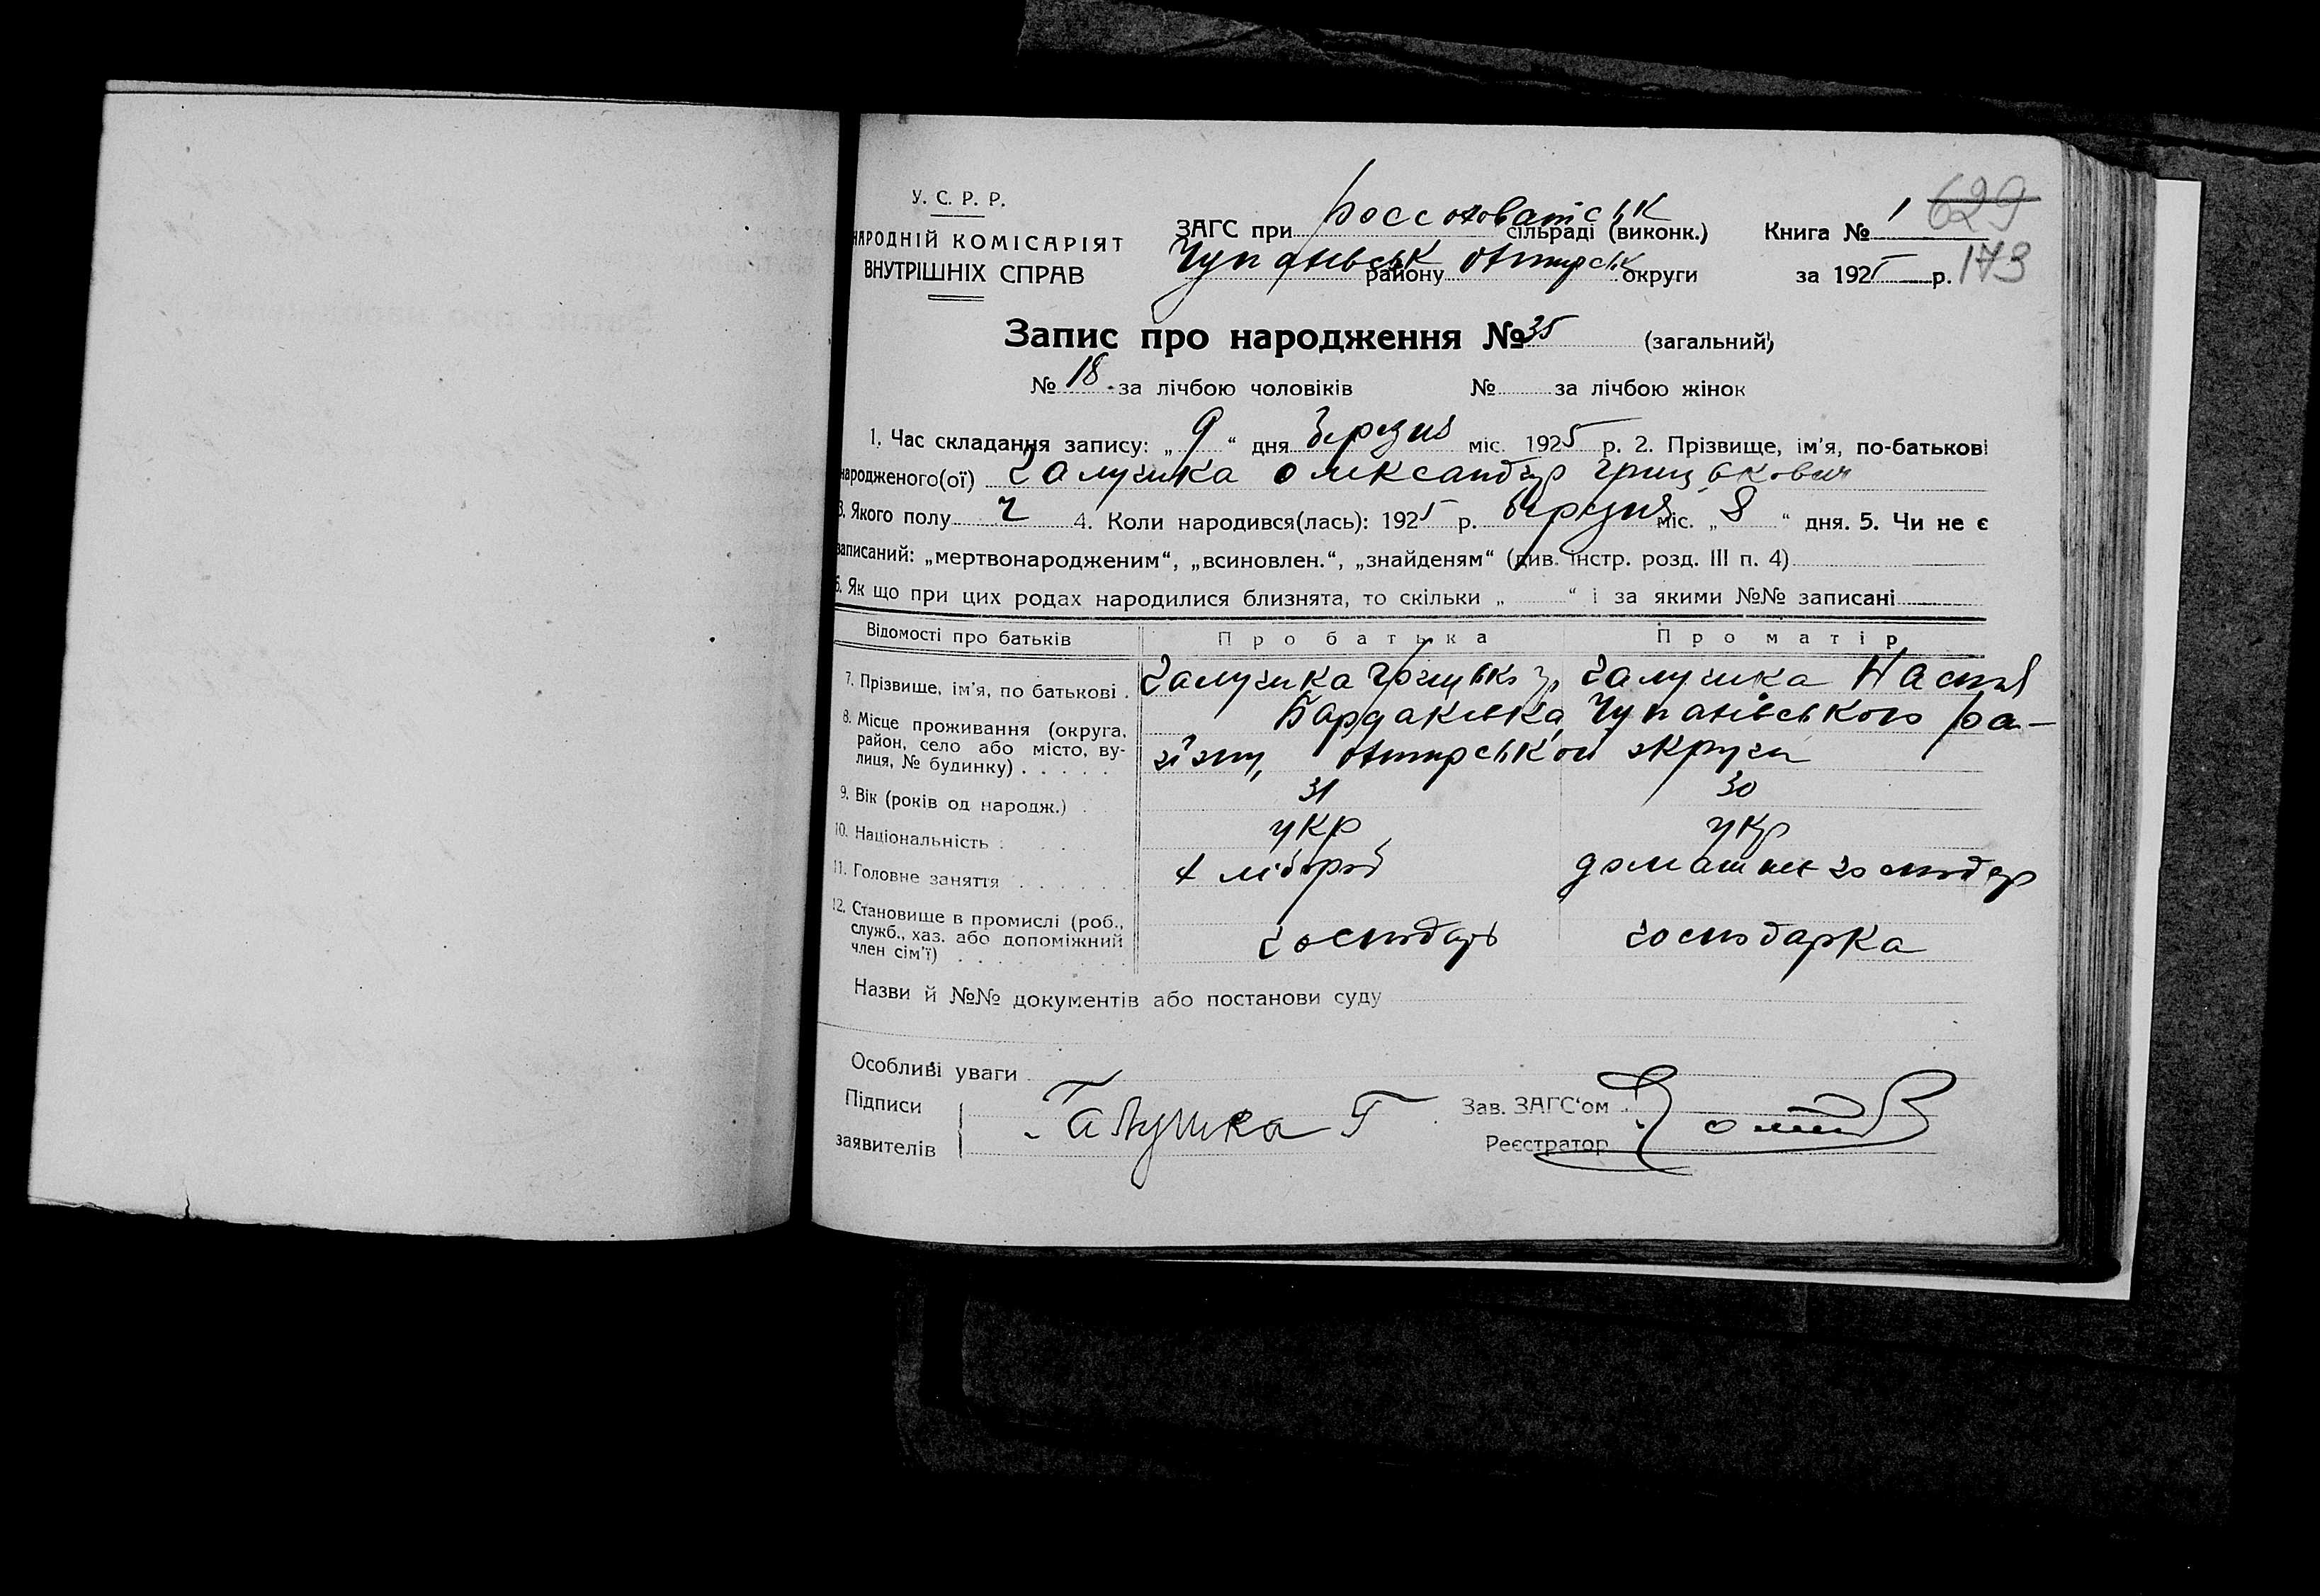 У. С. Р. Р.
НАРОДНІЙ КОМІСАРІЯТ
ВНУТРІШНІХ СПРАВ
ЗАГС при Россоховатськ сільраді (виконк.)
Чупахівськ району Охтирськ округи
Книга № 1 629
за 1925 р. 173
Запис про народження № 35 (загальний)
№ 18 за лічбою чоловіків № за лічбою жінок
1. Час складання запису: „ 9 “ дня березня міс. 1925 р. 2. Прізвище, ім'я, по-батькові
народженого(ої) Галушка Олександер Грицькович
3. Якого полу ч 4. Коли народився(лась): 1925 р. березня міс. „ 8 “ дня. 5. Чи не є
записаний: „мертвонародженим“, „всиновлен.“, „знайденям“ (див. інстр. розд. III п. 4)
6. Як що при цих родах народилися близнята, то скільки „ “ і за якими №№ записані
Відомості про батьків Про батька Про матір
7. Прізвище, ім'я, по батькові . Галушка Грицько Галушка Настя
8. Місце проживання (округа, Бардаківка, Чупахівського ра-
район, село або місто, ву-
лиця, № будинку) . . . . . йону, Охтирської округи
9. Вік (років од народж.) . 31 30
10. Національність . . . . укр укр
11. Головне заняття . . . . . . хлібороб домашнє господар
12. Становище в промислі (роб.,
служб., хаз. або допоміжний господарь господарка
член сім'ї) . . . . . . . . .
Назви й №№ документів або постанови суду
Особливі уваги
Підписи
заявителів Галушка Г
Зав. ЗАГС'ом
Реєстратор